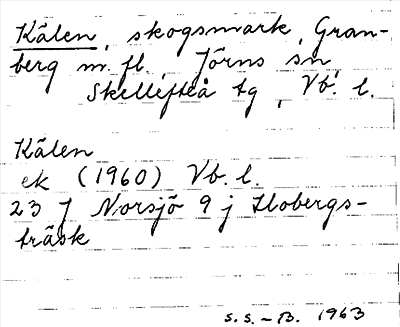 Kälen, skogsmark, Gran-
berg m. fl. Jörns sn,
Skellefteå tg, Vb. l.
Kälen
ek (1960) Vb. l.
23 J Norsjö 9 j Flobergs-
träsk
s.s. - B. 1963